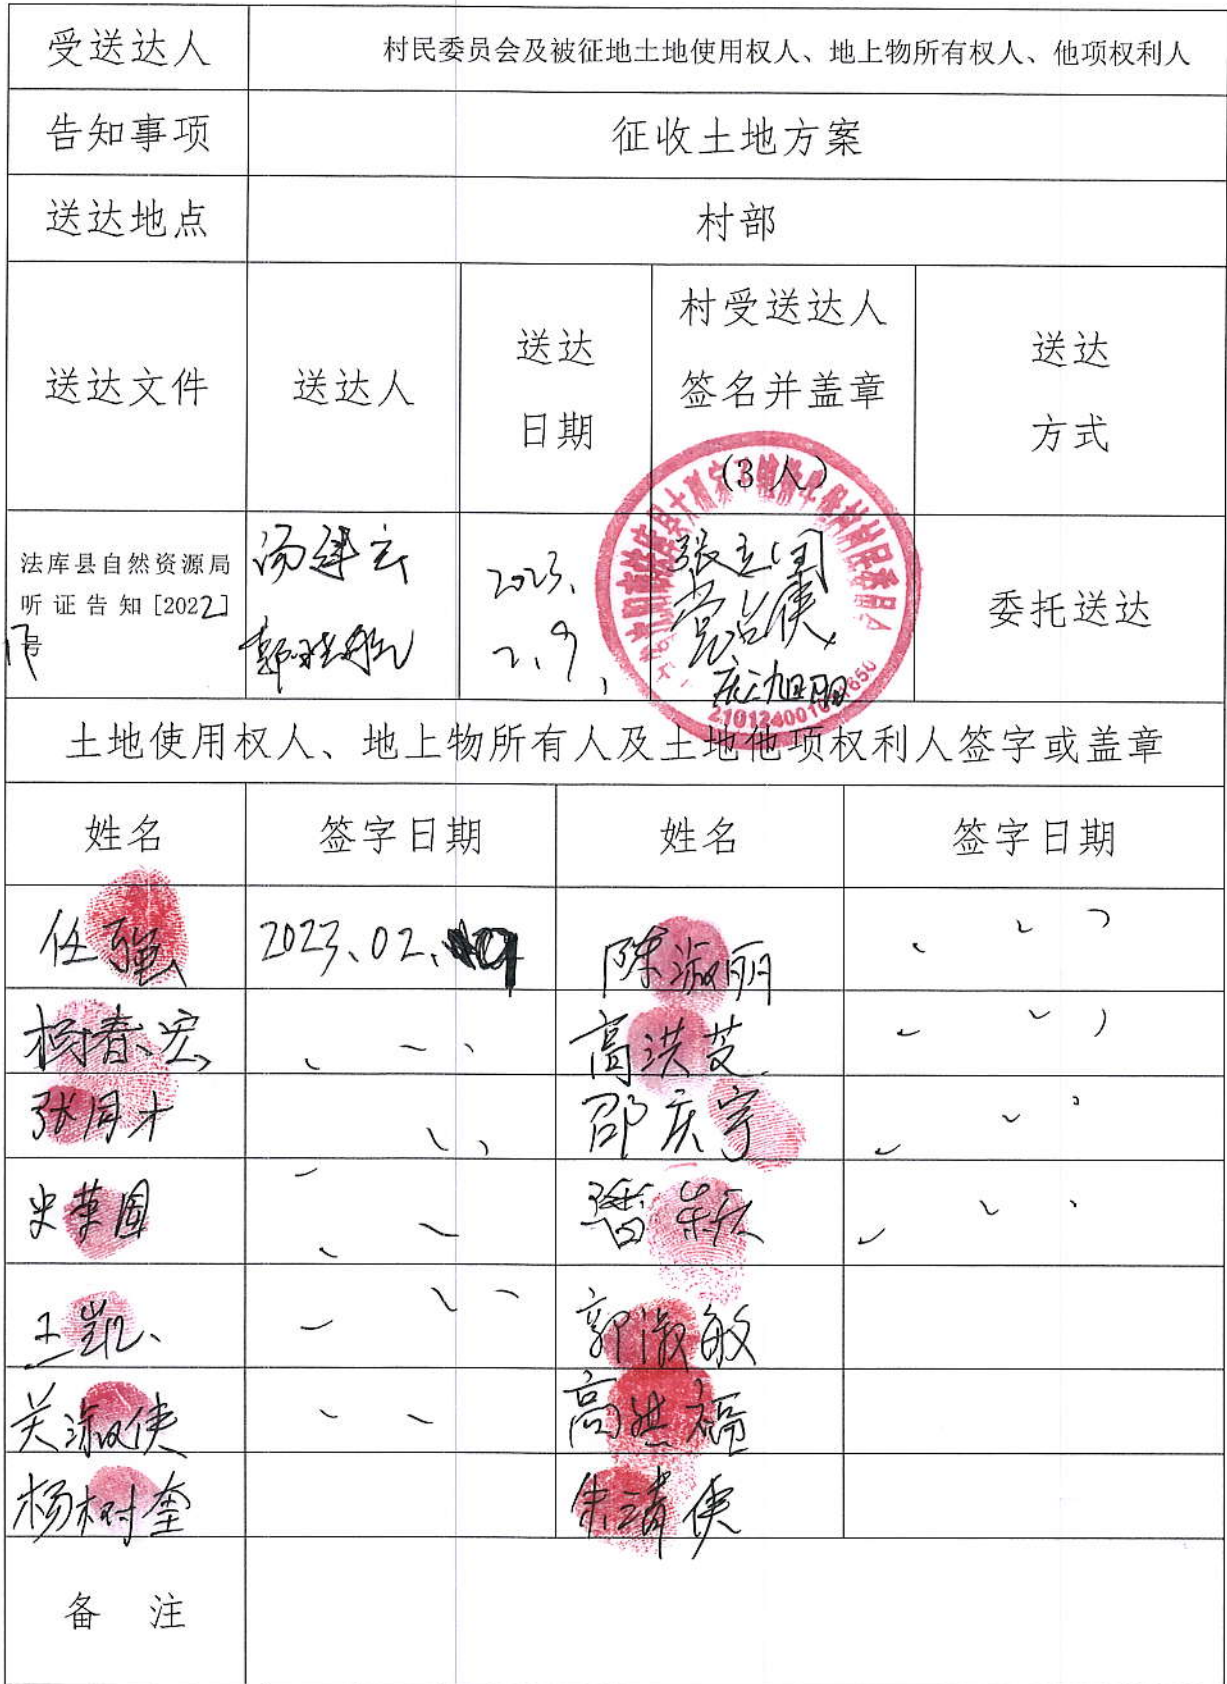 受送达人 村民委员会及被征地土地使用权人、地上物所有权人、他项权利人
告知事项 征收土地方案
送达地点 村部
送达文件 送达人 送达日期 村受送达人签名并盖章(3人) 送达方式
法库县自然资源局
听证告知[2022]
17号
2023.
2.9.
张立国
委托送达
2101240010
土地使用权人、地上物所有人及土地他项权利人签字或盖章
姓名 签字日期 姓名 签字日期
任强 2023.02.09 陈淑丽
杨春宏 高洪芝
张同才 邵庆宇
史英国
王凯 郭淑敏
关淑侠 高洪福
杨树奎 朱清侠
备 注